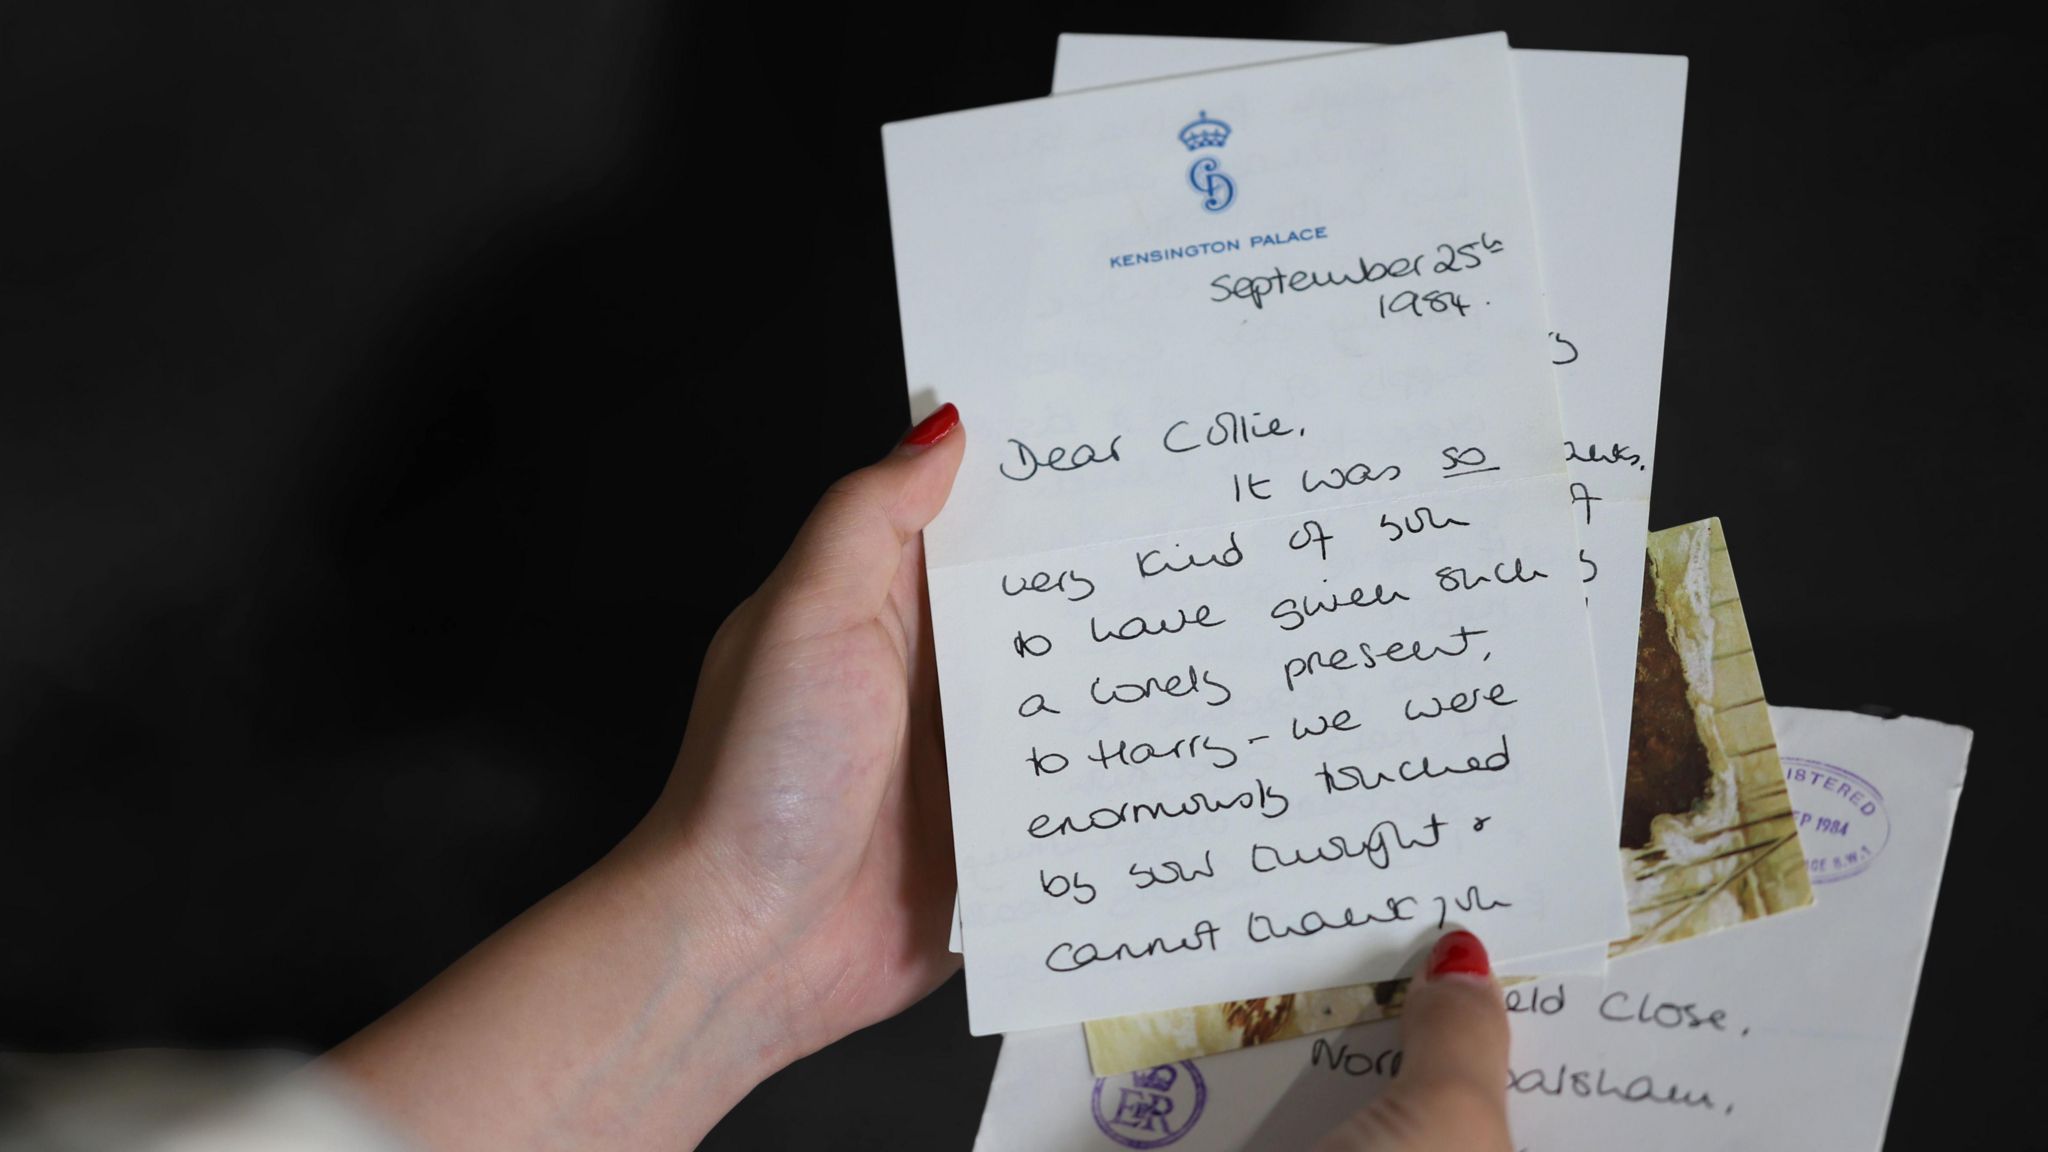 CD
KENSINGTON PALACE
September 25th
1984.
Dear Collie,
It was so
very kind of you
to have given such
a lovely present,
to Harry - we were
enormously touched
by your thought &
cannot thank you
ISTERED
EP 1984
GE S.W.1
eld Close.
Nor alsham.
EIIR